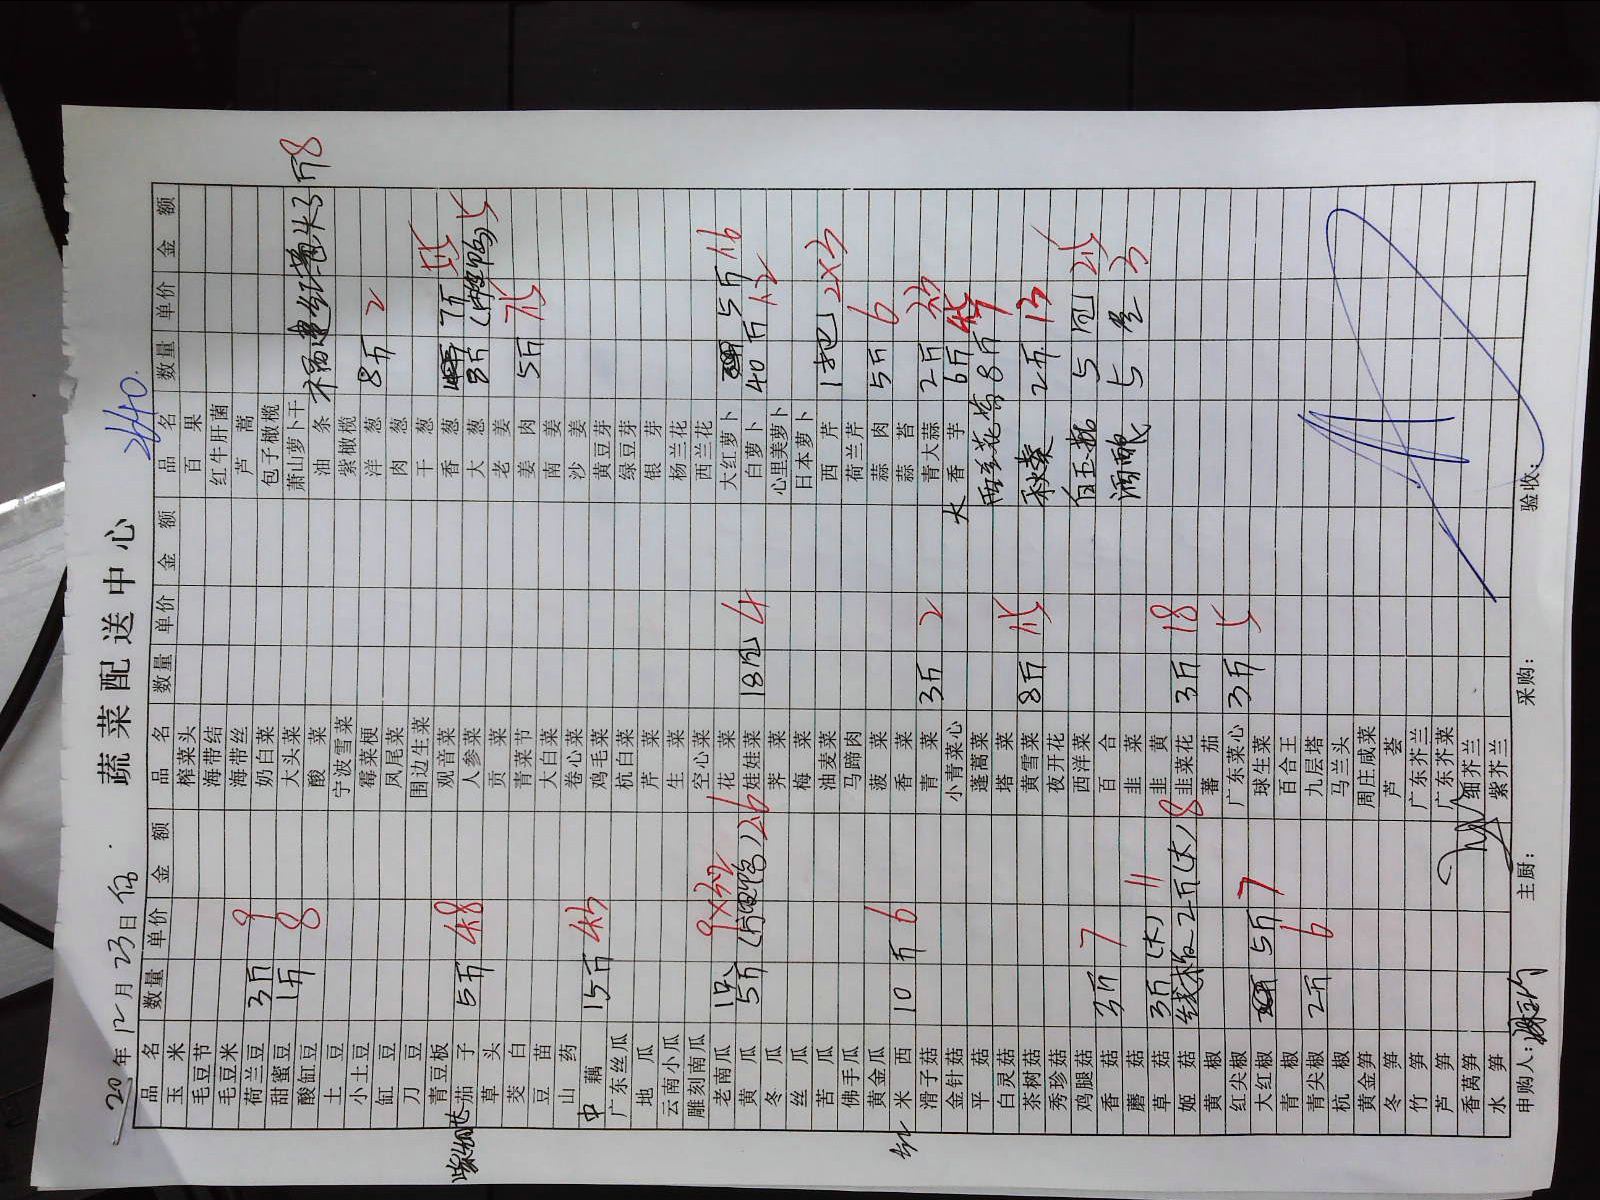 2640.
蔬菜配送中心
20 年 12月 23日
品名 数量 单价 金额 品名 数量 单价 金额 品名 数量 单价 金额
玉米 榨菜头 百果
毛豆节 海带结 红牛肝菌
毛豆米 海带丝 芦蒿
荷兰豆 3斤 9 奶白菜 包子橄榄
甜蜜豆 1斤 8 大头菜 萧山萝卜干
酸缸豆 酸菜 油条 3斤 8
土豆 宁波雪菜 紫橄榄
小土豆 霉菜梗 洋葱 8斤 2
缸豆 凤尾菜 肉葱
刀豆 围边生菜 干葱
青豆板 观音菜 香葱 7斤 5.5
茄子 5斤 4.8 人参菜 大葱 3斤 (片皮鸭) 5
草头 贡菜 老姜
茭白 青菜节 姜肉 5斤 7.5
豆苗 大白菜 南姜
山药 卷心菜 沙姜
中 藕 15斤 4.5 鸡毛菜 黄豆芽
广东丝瓜 杭白菜 绿豆芽
地瓜 芹菜 银芽
云南小瓜 生菜 杨兰花
雕刻南瓜 空心菜 西兰花
老南瓜 1只 9×3.2 花菜 大红萝卜 5斤 1.6
黄瓜 5斤 (片皮鸭) 2.6 娃娃菜 18包 4 白萝卜 40斤 1.2
冬瓜 荠菜 心里美萝卜
丝瓜 梅菜 日本萝卜
苦瓜 油麦菜 西芹 1把 2×3
佛手瓜 马蹄肉 荷兰芹
黄金瓜 菠菜 蒜肉 5斤 6
红 米西 10斤 6 香菜 蒜苔
滑子菇 青菜 3斤 2 青大蒜 2斤 3.5
金针菇 小青菜心 大 香芋 6斤 4.5
平菇 蓬蒿菜 西兰花 8斤
白灵菇 塔菜
茶树菇 黄雪菜 8斤 1.5 秋葵 2斤 13
秀珍菇 夜开花
鸡腿菇 西洋菜 白玉菇 5包 2.5
香菇 3斤 7 百合
蘑菇 韭菜 酒酿 5盒 3
草菇 3斤 (大) 11 韭黄
姬菇 2斤 (大) 8 韭菜花 3斤 18
黄椒 蕃茄
红尖椒 广东菜心 3斤 5
大红椒 5斤 7 球生菜
青椒 百合王
青尖椒 2斤 6 九层塔
杭椒 马兰头
黄金笋 周庄咸菜
冬笋 芦荟
竹笋 广东芥兰
芦笋 广东芥菜
香莴笋 细芥兰
水笋 紫芥兰
申购人: 主厨: 采购: 验收: